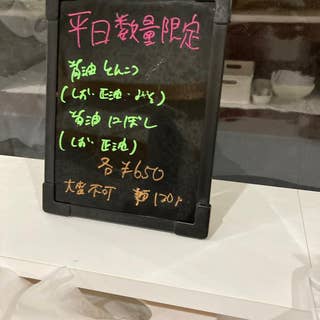 平日数量限定
背油とんこつ
(しお・正油・みそ)
背油にぼし
(しお・正油)
各¥650
大盛不可 麺120g